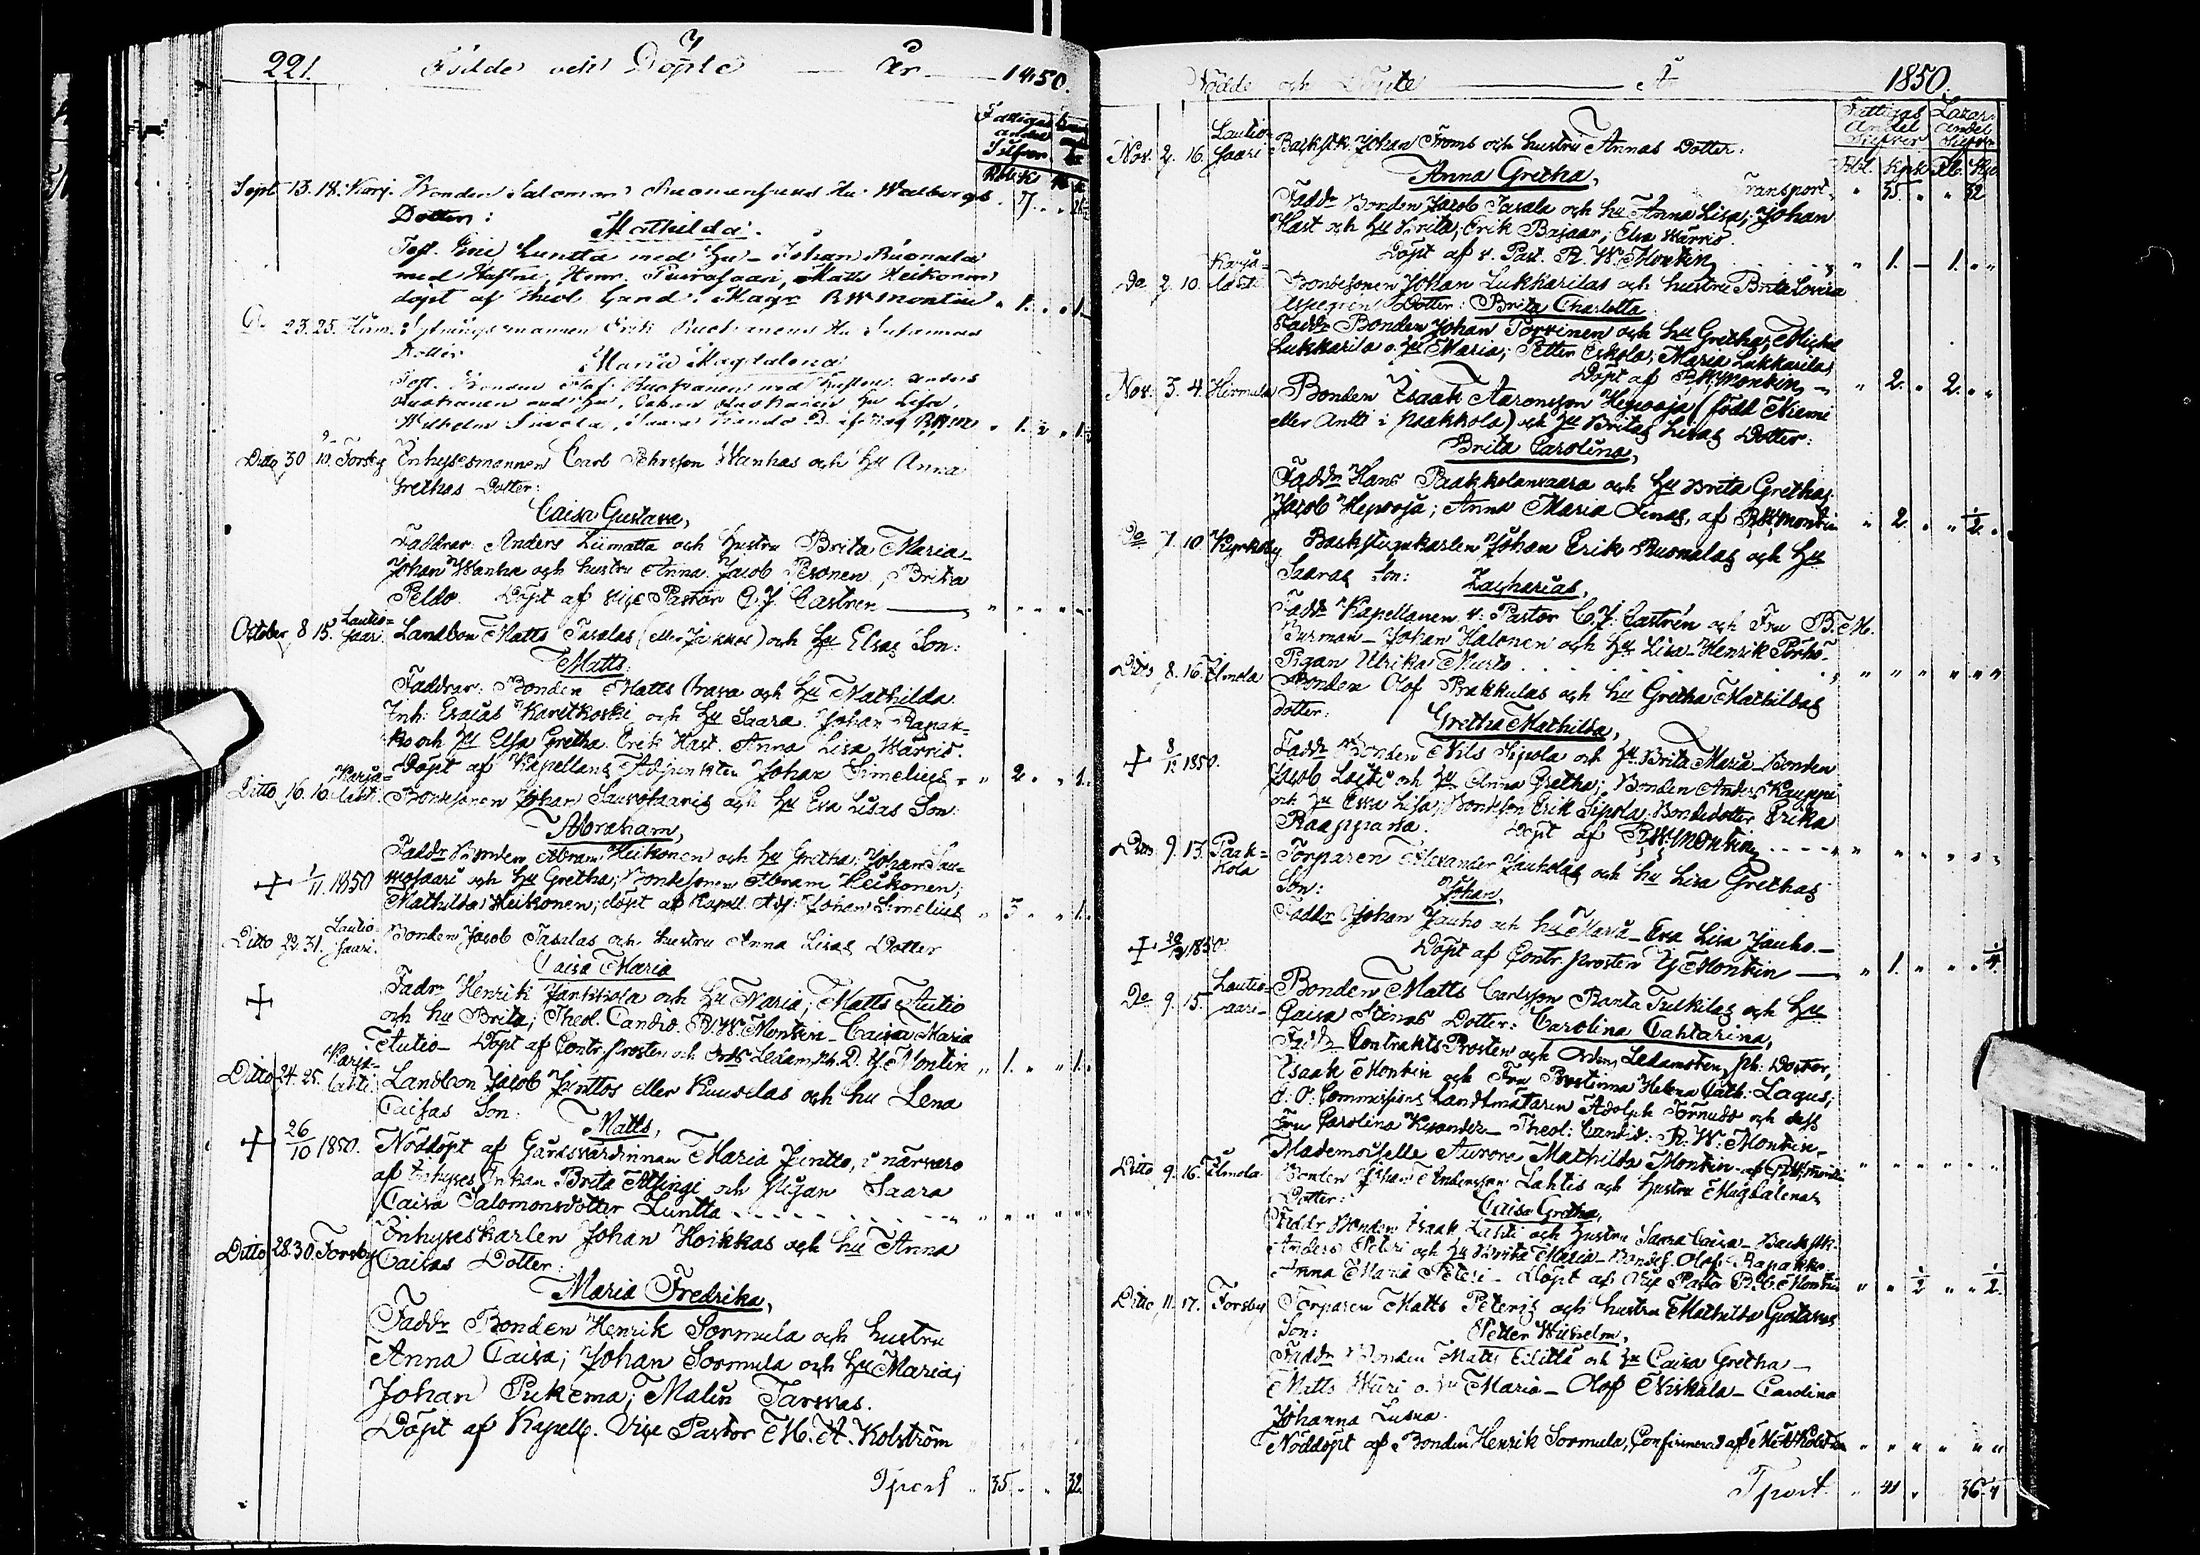 221. Födde och Döpte År 1850.
Fattigas andel Silfver
Rbl. K
Sept 13. 18. Karj. Bonden Salomon Hu Walborgs
Dotter:
Mathilda.
Test. Eric Luntta med Hu - Johan Ruonala
med Hustru, Henr. Puirasaari, Matts Heikonen
döpt af Theol. Cand. Mag. R W Montin 1. 1.
Do 23. 25. Erik Hu
Dotter
Maria Magdalena
Test. Bonden Olof med Hustru Anders
med Hu, Johan Hu Lisa,
Wilhelm 1. 1.
Ditto 30 9/10. Forsby Enhysesmannen Carl Pehrsson Wanhas och Hu Anna
Grethas Dotter:
Caisa Gustava,
Faddrar: Anders Liimatta och Hustru Brita Maria-
Johan Wanha och hustru Anna. Jacob Pesonen, Brita
Peldo. Döpt af Vice Pastor C. J. Castrén
October 8 15. Lautiosaari. Landbon Matts Tasalas (eller Jakkos) och Hu Elsas Son:
Matts.
Faddrar: Bonden Matts Orava och Hu Mathilda
Inh: Esaias Karitkoski och Hu Saara. Johan Rapak-
ko och Hu Elsa Gretha. Erik Hast. Anna Lisa Wärriö.
Döpt af Kapellans Adjunkten Johan Simelius 2. 1.
Ditto 16. 16. Karjalahti. Bondesonen Johan Sauvosaaris och Hu Eva Lisas Son:
Abraham,
Faddr Bonden Abram Heikonen och Hu Gretha; Johan Sau-
vosaari och Hu Gretha; Bondesonen Abram Heikonen;
+ 1/11. 1850 Mathilda Heikonen; döpt af Kapell. Adj: Johan Simelius 3 1.
Ditto 22. 31. Lautiosaari. Bonden Jacob Tasalas och hustru Anna Lisas Dotter
Caisa Maria
Fadr. Henrik Jankkola och Hu Maria; Matts Autio
+ och hu Brita; Theol. Candid. R. W. Montin - Caisa Maria
Autio - Döpt af Contr. Prosten och Ords Ledam. Ph. D. Y. Montin 1. 1.
Ditto 24. 25. Karjalahti. Landbon Jacob Jinttos eller Kuuselas och hu Lena
Caisas Son: Matts,
+ 26/10 1850. Nöddöpt af Gårdsvärdinnan Maria Jintto, i närvaro
af Enhyses Enkan Brita Alsingi och Pigan Saara
Caisa Salomonsdotter Luntta
Ditto 28. 30. Forsby Enhyseskarlen Johan Hoikkas och hu Anna
Caisas Dotter:
Maria Fredrika,
Faddr Bonden Henrik Sormula och hustru
Anna Caisa; Johan Sormula och Hu Maria;
Johan Pukema; Malin Tarvas.
Döpt af Kapell. Vice Pastor M. A. Kolström
Tport 35. 32.
Födde och Döpte År 1850.
Fattigas Andel Silfver Lazar. andel Silfver
Rbl. Kpk Rb. Kp
Nov. 2. 16. Lautiosaari Backstk. Johan Froms och hustru Annas Dotter:
Anna Gretha, Transport 35. 32
Faddr Bonden Jacob Tasala och hu Anna Lisa; Johan
Hast och Hu Brita; Erik Bajaar; Elsa Wärriö.
Döpt af v. Past. R. W. Montin 1. 1.
Do 2. 10. Karjalahti Bondesonen Johan Lukkarilas och hustru Brita Lovisa
Aspegrens Dotter: Brita Charlotta.
Faddr Bonden Johan Torvinen och hu Gretha; Michel
Lukkarila o. hu Maria; Petter Eskola; Maria Lukkarila;
Döpt af R W Montin 2. 2.
Nov. 3. 4. Hirmula Bonden Isaak Aaronsson Hepooja (född Niemi
eller Antti i Paakkola) och Hu Britas Lisas Dotter:
Brita Carolina,
Faddr Hans Paakkolanvaara och Hu Brita Gretha;
Jacob Hepooja; Anna Maria Lenas, af R W Montin 2. 1/2.
Do 7. 10 Kyrkoby Backstugukarlen Johan Erik Ruonalas och Hu
Saaras Son: Zacharias,
Faddr Kapellanen v. Pastor C. J. Castrén och Fru B. M.
Burman - Johan Halonen och Hu Lisa - Henrik Pörhö -
Pigan Ulrika Murto
Ditto 8. 16. Elmola Bonden Olof Prakkulas och hu Gretha Mathildas
dotter: Gretha Mathilda,
+ 8/12 1850. Faddr Bonden Nils Sipola och Hu Brita Maria - Bonden
Jacob Laite och Hu Anna Gretha; Bonden Anders Kauppi
och Hu Eva Lisa; Bondeson Erik Sipola; Bondedotter Erika
Raappana. Döpt af R W Montin
Ditto 9. 13. Paakkola Torparen Alexander Jauholas och hu Lisa Grethas
Son: Johan,
Faddr Johan Jauho och hu Maria - Eva Lisa Jauho. -
+ 1850. Döpt af Contr. Prosten Y Montin 1. 1/4.
Do 9. 15. Lautiosaari - Bonden Matts Carlsson Banta Tulkilas och Hu
Caisa Stinas Dotter: Carolina Cahtarina,
Faddr Contrakts Prosten och Ordens Ledamoten, ph. Doctor,
Isaak Montin och Fru Prostinna Helena Cath. Lagus;
d. o. Commissions Landtmätaren Adolph Törnudd och dess
Fru Carolina Kysander - Theol: Candid: R. W. Montin -
Mademoiselle Aurora Mathilda Montin - af R W Montin
Ditto 9. 16. Elmola Bonden Johan Andersson Lahtis och Hustru Magdalenas
Dotter: Caisa Gretha,
Faddr Bonden Isaak Lahti och Hustru Saara Caisa - Backstk.
Anders Peteri och Hu Brita Maria - Bondes. Olof Rapakko -
Anna Maria Peteri - Döpt af Vice Pastor R. W. Montin 1/2 1/2.
Ditto 11. 17. Forsby Torparen Matts Peteris och hustru Mathilda Gustavas
Son: Petter Wilhelm,
Faddr Bonden Matts Eilittä och Hu Caisa Gretha -
Matts Wiiri o. hu Maria - Olof Niskala - Carolina
Johanna Lusua.
Nöddöpt af Bonden Henrik Sormula, Confirmerad af M A Kolström
Tport. 41 36. 1/4